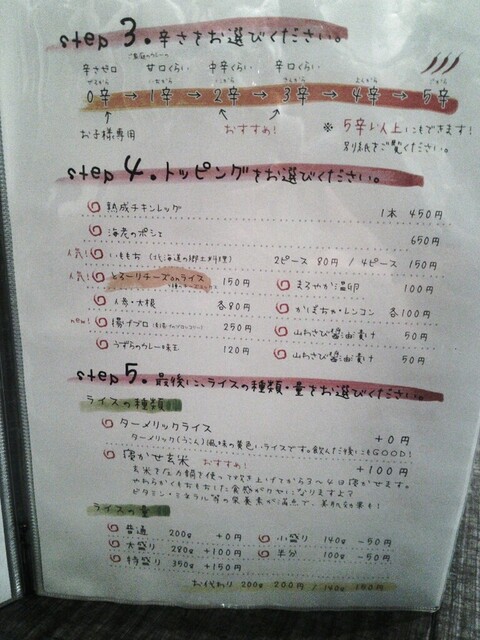 step 3. 辛さをお選びください。
辛さゼロ 甘口くらい 中辛くらい 辛口くらい
0辛 → 1辛 → 2辛 → 3辛 → 4辛 → 5辛
お子様専用 おすすめ! ※ 5辛以上にもできます!
別紙をご覧ください。
step 4. トッピングをお選びください。
熟成チキンレッグ 1本 450円
650円
人気! いももち (北海道の郷土料理) 2ピース 80円 / 4ピース 150円
人気! とろーりチーズonライス 150円
まろやか温卵 100円
人参・大根 各80円
かぼちゃ・レンコン 各100円
new! 揚げブロ 250円
山わさび醤油漬け 50円
うずらのカレー味玉 120円
山わさび醤油漬け 50円
step 5. 最後に、ライスの種類・量をお選びください。
ライスの種類
ターメリックライス +0円
ターメリック(うこん)風味の黄色いライスです。飲んだ後にもGOOD!
寝かせ玄米 おすすめ! +100円
玄米を圧力鍋を使って炊き上げてから3〜4日寝かせます。
やわらかくもちもちした食感がクセになりますよ?
ビタミン・ミネラル等の栄養素が満点で、美肌効果も!
ライスの量
普通 200g +0円
小盛り 140g -50円
大盛り 280g +100円
半分 100g -50円
特盛り 350g +150円
お代わり 200g 200円 / 140g 150円